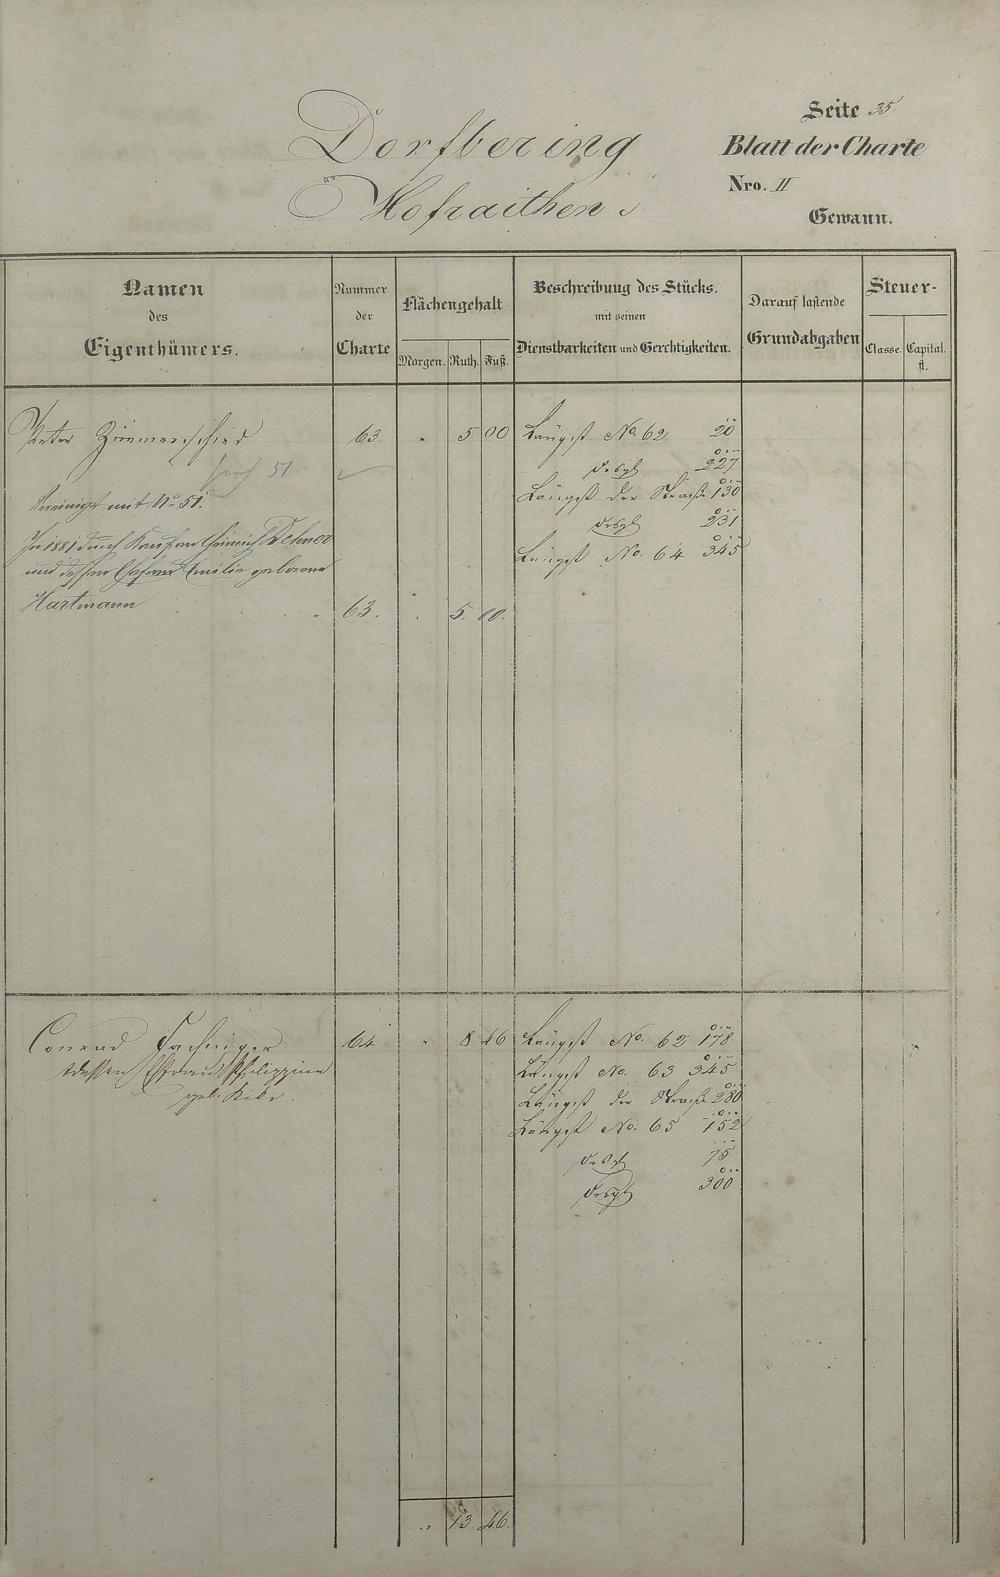 Dorfbering
Hofraithen
Seite 35
Blatt der Charte
Nro. II
Gewann.
Namen
des
Eigenthümers.
Nummer
der
Charte
Flächengehalt
Morgen. Ruth. Fuß.
Beschreibung des Stücks.
mit seinen
Dienstbarkeiten und Gerechtigkeiten.
Darauf lastende
Grundabgaben
Steuer-
Classe. Capital.
fl.
Peter Zimmerschied 63 " 5 00 Längst No. 62 20
51. desgl 227
Vereinigt mit No. 51. Längst der Straße 130
In 1881 durch Kauf an Heinrich Dehner desgl 231
und dessen Ehefrau Emilie geborene Längst No. 64 345
Hartmann 63. 5. 00.
Conrad Fachinger 64 " 8 46 Längst No. 62 178
dessen Ehefrau Philippine Längst No. 63 345
geb. Längst der Straße 280
Längst No. 65 152
desgl 75
desgl 300
" 13 46.